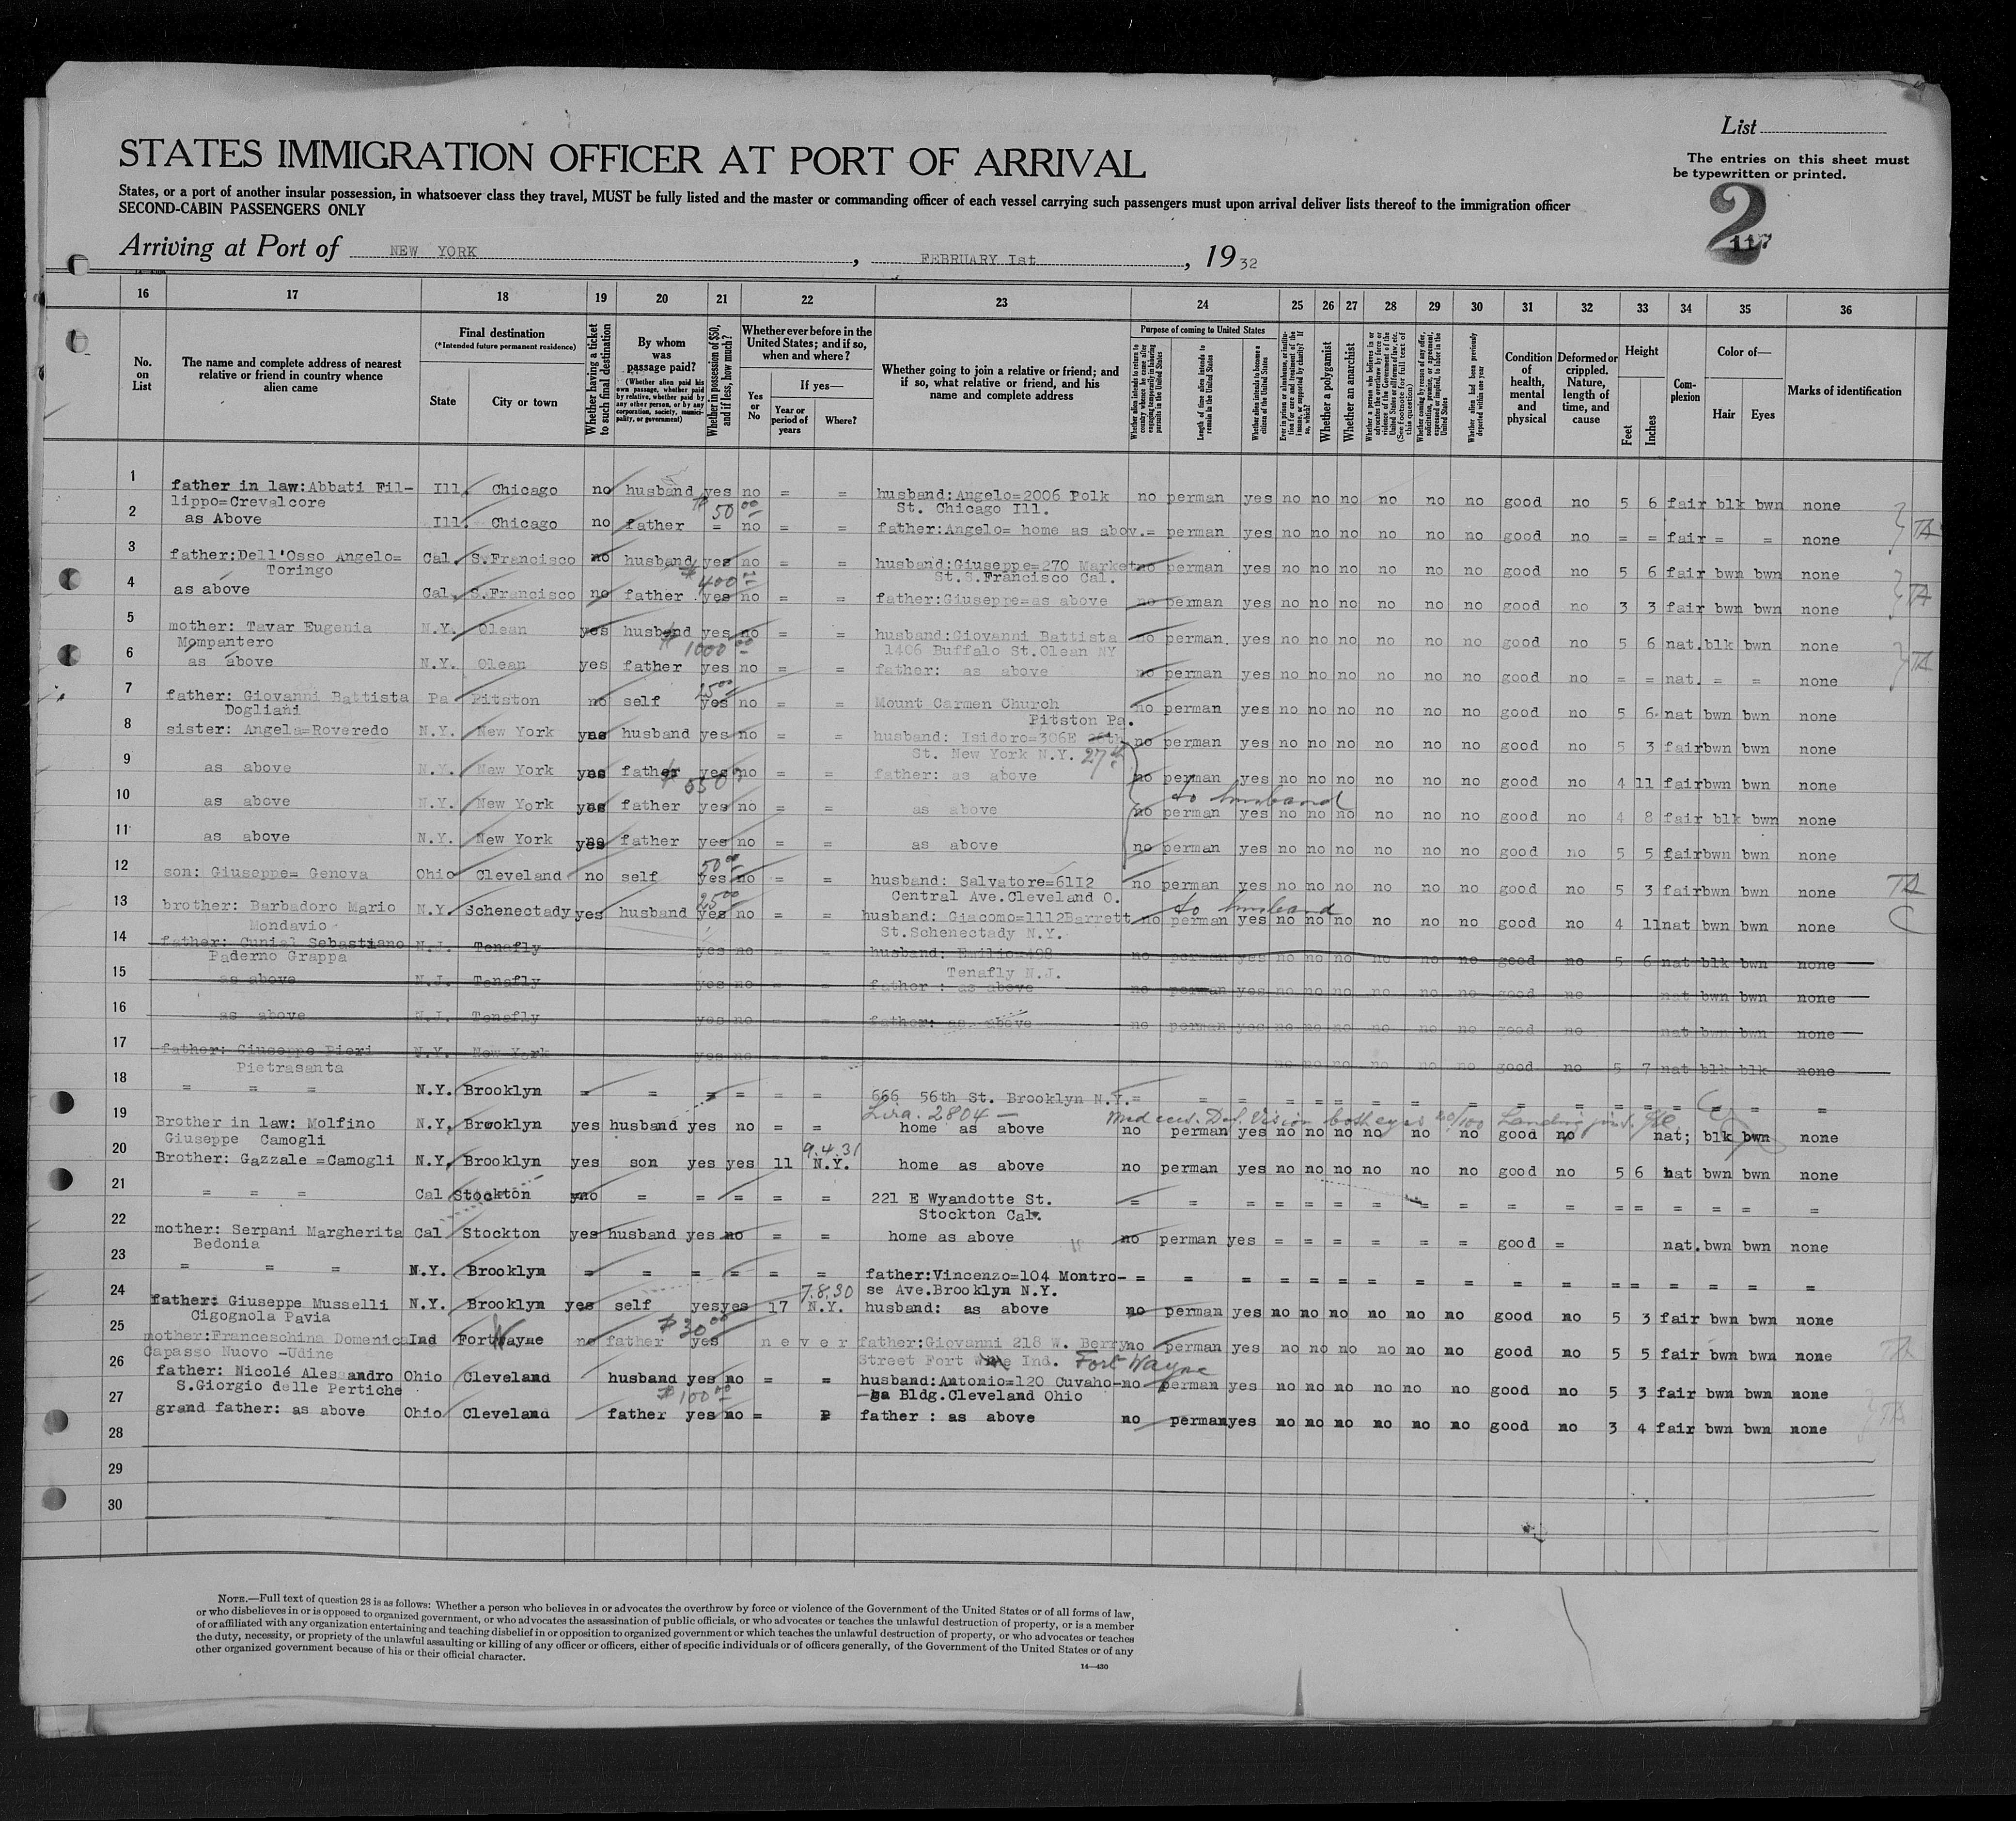 List
STATES IMMIGRATION OFFICER AT PORT OF ARRIVAL
The entries on this sheet must
be typewritten or printed.
States, or a port of another insular possession, in whatsoever class they travel, MUST be fully listed and the master or commanding officer of each vessel carrying such passengers must upon arrival deliver lists thereof to the immigration officer
SECOND-CABIN PASSENGERS ONLY
2
117
Arriving at Port of NEW YORK, FEBRUARY Ist, 1932
16 17 18 19 20 21 22 23 24 25 26 27 28 29 30 31 32 33 34 35 36
No. on List
The name and complete address of nearest relative or friend in country whence alien came
Final destination
(*Intended future permanent residence)
State
City or town
Whether having a ticket to such final destination
By whom was passage paid?
(Whether alien paid his own passage, whether paid by relative, whether paid by any other person, or by any corporation, society, municipality, or government)
Whether in possession of $50, and if less, how much?
Whether ever before in the United States; and if so, when and where?
Yes or No
If yes—
Year or period of years
Where?
Whether going to join a relative or friend; and if so, what relative or friend, and his name and complete address
Purpose of coming to United States
Length of time alien intends to remain in the United States
Whether alien intends to become a citizen of the United States
Whether a polygamist
Whether an anarchist
Whether alien had been previously deported within one year
Condition of health, mental and physical
Deformed or crippled. Nature, length of time, and cause
Height
Feet
Inches
Complexion
Color of—
Hair
Eyes
Marks of identification
1 father in law:Abbati Fil- Ill. Chicago no husband yes no = = husband:Angelo=2006 Polk no perman yes no no no no no no good no 5 6 fair blk bwn none
lippo=Crevalcore 50 00 St. Chicago Ill.
2 as Above Ill. Chicago no father = no = = father:Angelo= home as abov.= perman yes no no no no no no good no = = fair = = none TA
3 father:Dell'Osso Angelo= Cal. S.Francisco no husband yes no = = husband:Giuseppe=270 Market no perman yes no no no no no no good no 5 6 fair bwn bwn none
Toringo $400 St.S.Francisco Cal.
4 as above Cal. S.Francisco no father yes no = = father:Giuseppe=as above no perman yes no no no no no no good no 3 3 fair bwn bwn none TA
5 mother: Tavar Eugenia N.Y. Olean yes husband yes no = = husband:Giovanni Battista no perman. yes no no no no no no good no 5 6 nat. blk bwn none
Mompantero $1000 00 1406 Buffalo St.Olean NY
6 as above N.Y. Olean yes father yes no = = father: as above no perman yes no no no no no no good no = = nat. = = none TA
7 father: Giovanni Battista Pa Pitston no self 25 00 yes no = = Mount Carmen Church no perman yes no no no no no no good no 5 6 nat bwn bwn none
Dogliani Pitston Pa.
8 sister: Angela=Roveredo N.Y. New York yes husband yes no = = husband: Isidoro=306E no perman yes no no no no no no good no 5 3 fair bwn bwn none
St. New York N.Y. 27th
9 as above N.Y. New York yes father yes no = = father: as above no perman yes no no no no no no good no 4 11 fair bwn bwn none
$ 550 to husband
10 as above N.Y. New York yes father yes no = = as above no perman yes no no no no no no good no 4 8 fair blk bwn none
11 as above N.Y. New York yes father yes no = = as above no perman yes no no no no no no good no 5 5 fair bwn bwn none
12 son: Giuseppe= Genova Ohio Cleveland no self 50 00 yes no = = husband: Salvatore=6II2 no perman yes no no no no no no good no 5 3 fair bwn bwn none TA
Central Ave.Cleveland O. to husband
13 brother: Barbadoro Mario N.Y. Schenectady yes husband 25 00 yes no = = husband: Giacomo=1112Barrett no perman yes no no no no no no good no 4 11 nat bwn bwn none
Mondavio St.Schenectady N.Y.
14 father: Cunial Sebastiano N.J. Tenafly yes no = = husband: Emilio=498 no perman yes no no no no no no good no 5 6 nat blk bwn none
Paderno Grappa Tenafly N.J.
15 as above N.J. Tenafly yes no = = father : as above no perman yes no no no no no no good no nat bwn bwn none
16 as above N.J. Tenafly yes no = = father: as above no perman yes no no no no no no good no nat bwn bwn none
17 father: Giuseppe Pieri N.Y. New York yes no = = no no no no no no good no 5 7 nat blk blk none
Pietrasanta
18 = = = N.Y. Brooklyn = = = = = = 666 56th St. Brooklyn N.Y. = = = = = = = = = = = = = = = = =
Lira. 2804 — Med cert. Def. Vision both eyes 20/100
19 Brother in law: Molfino N.Y. Brooklyn yes husband yes no = = home as above no perman yes no no no no no no good no nat; blk bwn none
Giuseppe Camogli 9.4.31
20 Brother: Gazzale =Camogli N.Y. Brooklyn yes son yes yes 11 N.Y. home as above no perman yes no no no no no no good no 5 6 nat bwn bwn none
21 = = = Cal Stockton no = = = = = 221 E Wyandotte St. = = = = = = = = = = = = = = = = =
Stockton Cal.
22 mother: Serpani Margherita Cal Stockton yes husband yes no = = home as above no perman yes = = = = = = good = nat. bwn bwn none
Bedonia
23 = = = N.Y. Brooklyn = = = = = = father:Vincenzo=104 Montro- = = = = = = = = = = = = = = = = =
7.8.30 se Ave.Brooklyn N.Y.
24 father: Giuseppe Musselli N.Y. Brooklyn yes self yes yes 17 N.Y. husband: as above no perman yes no no no no no no good no 5 3 fair bwn bwn none
Cigognola Pavia $30 00
25 mother:Franceschina Domenica Ind Fort Wayne no father yes never father:Giovanni 218 W. Berry no perman yes no no no no no no good no 5 5 fair bwn bwn none TA
Capasso Nuovo -Udine Street Fort Ind. Fort Wayne
26 father: Nicolé Alessandro Ohio Cleveland husband yes no = = husband:Antonio=120 Cuvaho- no perman yes no no no no no no good no 5 3 fair bwn bwn none
S.Giorgio delle Pertiche $100 00 -ga Bldg.Cleveland Ohio
27 grand father: as above Ohio Cleveland father yes no = father : as above no perman yes no no no no no no good no 3 4 fair bwn bwn none TA
28
29
30
NOTE.—Full text of question 28 is as follows: Whether a person who believes in or advocates the overthrow by force or violence of the Government of the United States or of all forms of law,
or who disbelieves in or is opposed to organized government, or who advocates the assassination of public officials, or who advocates or teaches the unlawful destruction of property, or is a member
of or affiliated with any organization entertaining and teaching disbelief in or opposition to organized government or which teaches the unlawful destruction of property, or who advocates or teaches
the duty, necessity, or propriety of the unlawful assaulting or killing of any officer or officers, either of specific individuals or of officers generally, of the Government of the United States or of any
other organized government because of his or their official character.
14—430